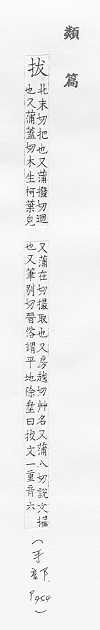 類篇
拔
北末切把也又蒲撥切迴
也又蒲蓋切木生柯葉皃
又蒲在切擢取也又房越切艸名又蒲八切說文擢
也又筆別切晉俗謂平地除壘曰拔文一重音六
(手部下)